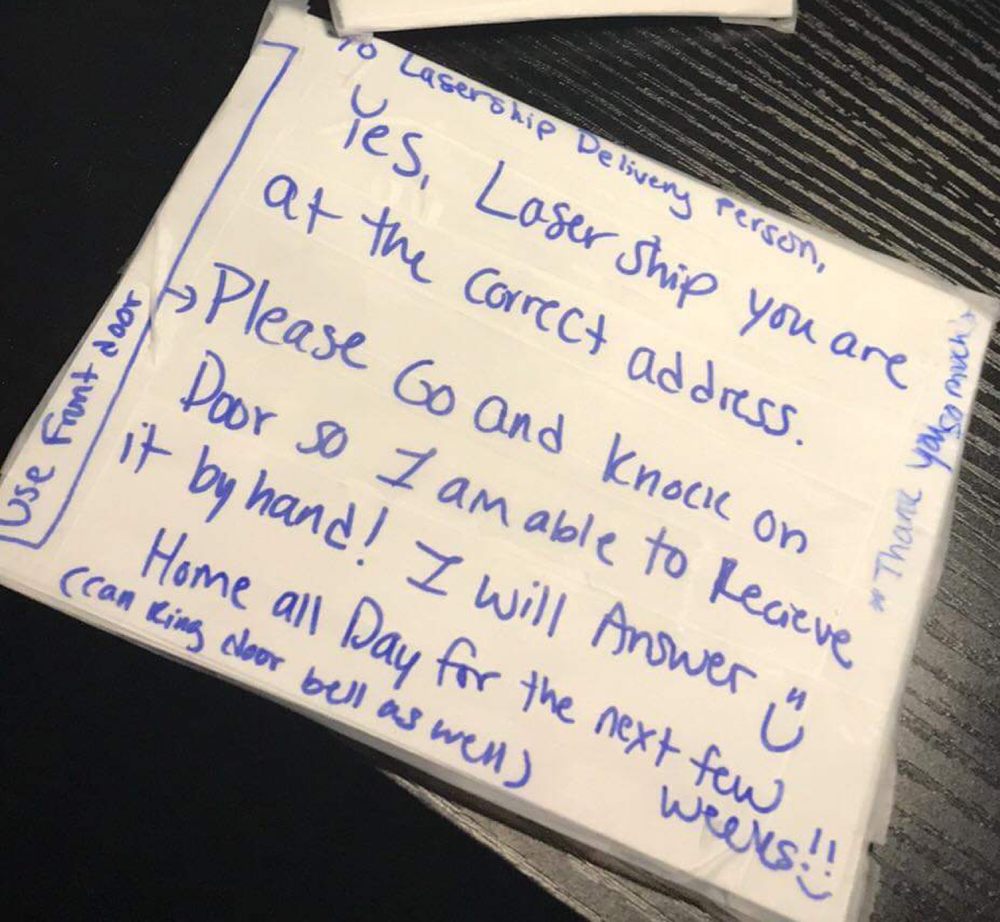 To Lasership Delivery Person,
Yes, Lasership you are
at the correct address.
Please Go and knock on
Door so I am able to Recieve
it by hand! I will Answer
Home all Day for the next few
weeks!!
(can Ring door bell as well)
Use Front door
"Thank you so much"